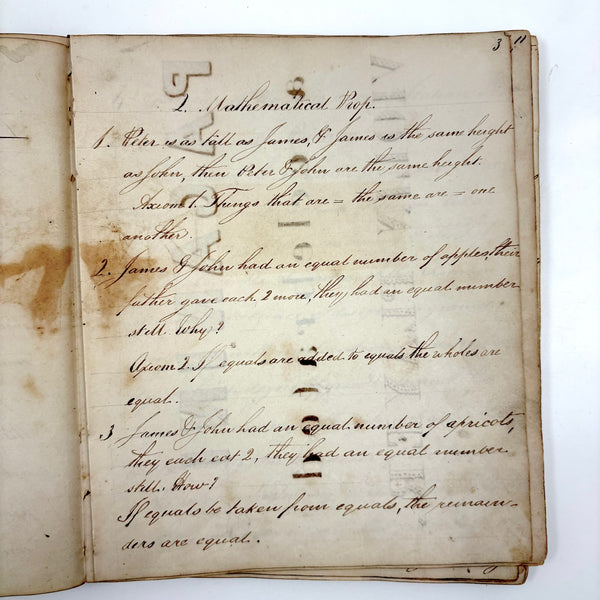 3 11
2. Mathematical Prop.
1. Peter is as tall as James, & James is the same height
as John, then Peter & John are the same height.
Axiom 1. Things that are = the same are = one
another.
2. James & John had an equal number of apples, their
father gave each 2 more, they had an equal number
still. Why?
Axiom 2. If equals are added to equals the wholes are
equal.
3 James & John had an equal number of apricots,
they each eat 2, they had an equal number
still. How?
If equals be taken from equals, the remain-
ders are equal.